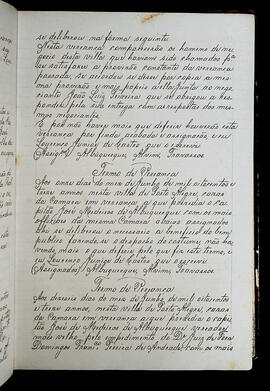 se deliberou na forma seguinte.
Nesta vereança compareceram os homens de ne-
gocio desta villa que haviam sido chamados p.ª
se satisfazer a provisão constante da vereança
passada, se acordou se desse por copia a mes-
ma provisão y mais papeis a ella juntos ao nego-
ciante José Luiz Teixeira que se obrigou a respon-
der pela sua entrega com as respostas dos mes-
mos negociantes.
E por não haver mais que deferir houverão esta
vereança por finda acabada e assignarão e eu
Lourenço Junior de Castro que o escrevi.
(Assig.os) Albuquerque, Avinim, Travassos
Termo de Vereança
Aos onze dias do mez de Junho de mil oitocentos
e treze annos nesta villa de Porto Alegre, cazas
da Camara em vereança a que prezidia o Ca-
pitão José de Medeiros de Albuquerque com os mais
officiaes da mesma Camara abaixo assignados
ahi se deliberou o necessario a beneficio do bem
publico fazendo-se o despacho do costume, não ha-
vendo mais o que deferir pelo que fiz este termo, e
eu Lourenço Junior de Castro que o escrevi.
(Assignados) Albuquerque, Avinim, Travassos
Termo de Vereança
Aos dezeseis dias do mez de Junho de mil oitocentos
e treze annos, nesta Villa de Porto Alegre, cazas
da Camara em vereança a que prezidia o capi-
tão José de Medeiros de Albuquerque vereador
mais velho pelo empedimento do D.or Juiz de Fora
Domingos Francisco Pereira de Andrade, com os mais